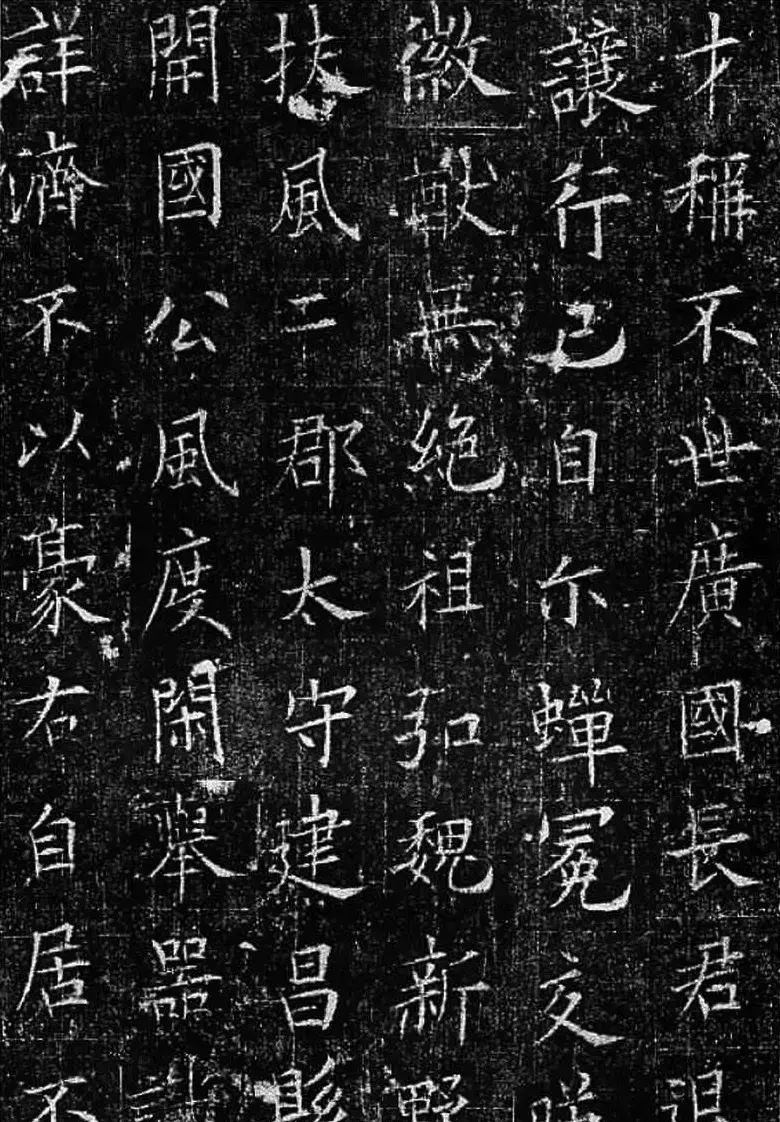 才稱不世廣國長君退
讓行己自尔蟬冕交暎
徽猷無絕祖弘魏新野
扶風二郡太守建昌縣
開國公風度閑舉器
詳濟不以豪右自居不